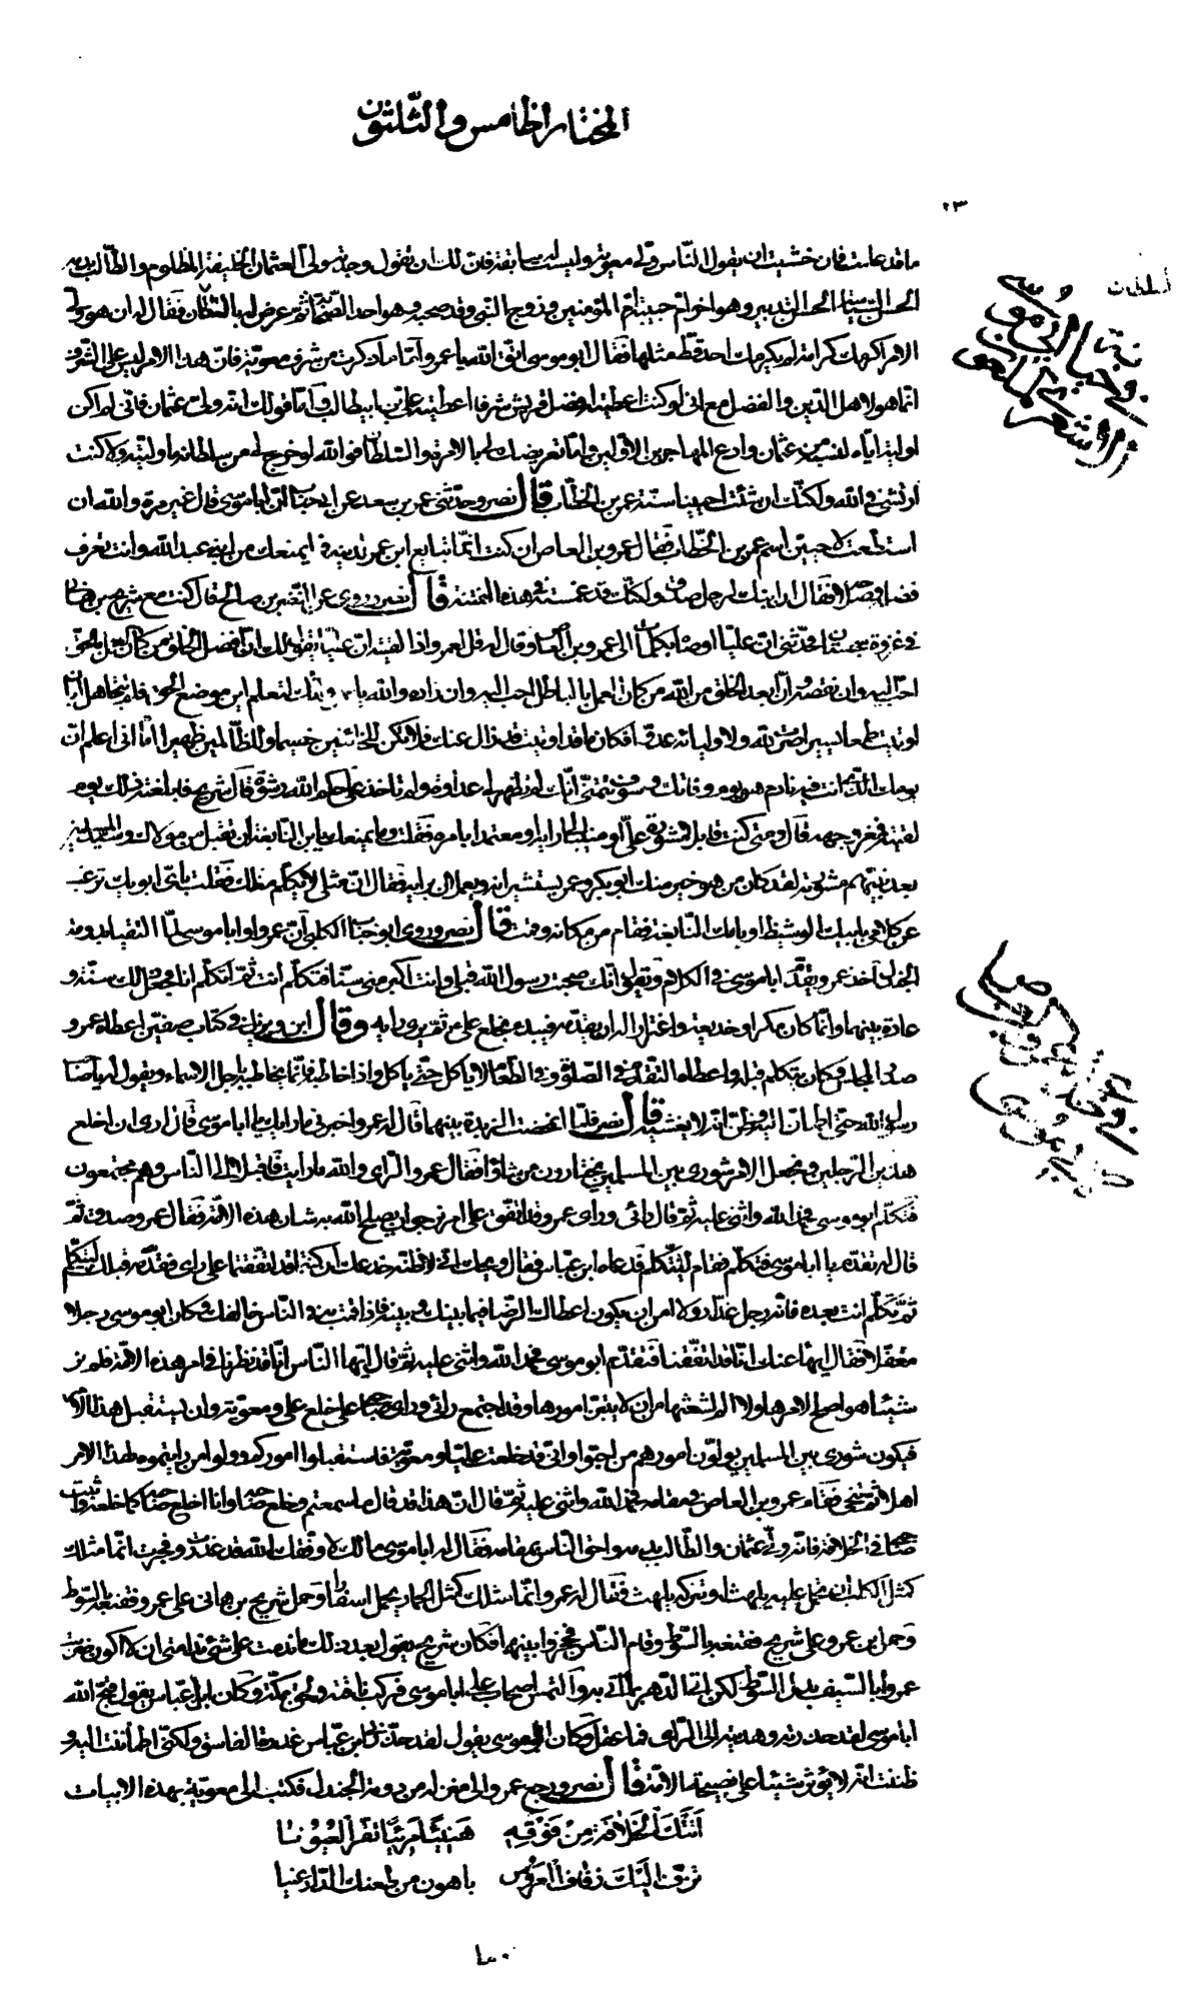 المختار الخامس والثلثون
ما قد عاست فان خشيت ان يقول الناس ولى معوية وليست له سابقة فان لك ان تقول وجدته ولى عثمان الخليفة المظلوم والطالب بدمه
الحسن السياسة الحسن التدبير وهو اخو ام حبيبة ام المؤمنين وزوج النبى وقد صحبه وهو احد الصحابة ثم عرض له بالسلطان فقال له ان هو ولى
الامر اكرمك كرامة لم يكرمك احد قط مثلها فقال ابو موسى اتق الله يا عمرو اما ما ذكرت من شرف معوية فان هذا الامر ليس على الشرف
انما هو لاهل الدين والفضل مع انى لو كنت اعطيه افضل قريش شرفا اعطيته على بن ابيطالب واما قولك انه ولى عثمان فانى لم اكن
اوليه اياه لنسبه من عثمان وادع المهاجرين الاولين واما تعريضك لى بالامرة والسلطان فوالله لو خرج لى من سلطانه ما وليته ولا كنت
ارتشى فى الله ولكنك ان شئت احيينا سنة عمر بن الخطاب قال نصر وحدثنى عمر بن سعد عن ابى جناب ان ابا موسى قال غير مرة والله ان
استطعت لاحيين اسم عمر بن الخطاب فقال عمرو بن العاص ان كنت انما تبايع ابن عمر لدينه فما يمنعك من ابنى عبد الله وانت تعرف
فضله وصلاحه فقال ان ابنك لرجل صدق ولكنك قد غمسته فى هذه الفتنة قال نصر وروى عن النضر بن صالح قال كنت مع شريح بن هانى
فى غزوة سجستان فحدثنى ان عليا اوصاه بكلمات الى عمرو بن العاص وقال له قل لعمرو اذا لقيته ان عليا يقول لك ان افضل الخلق من كان العمل بالحق
احب اليه وان نقصه وان ابعد الخلق من الله من كان العمل بالباطل احب اليه وان زاده والله يا عمرو انك لتعلم اين موضع الحق فلم تتجاهل ابان
اوتيت طمعا يسيرا صرت لله ولاوليائه عدوا فكان ما قد اوتيت قد زال عنك فلا تكن للخائنين خصيما ولا للظالمين ظهيرا اما انى اعلم ان
يومك الذى انت فيه نادم هو يوم وفاتك وسوف تتمنى انك لم تظهر لى عداوة ولم تاخذ على حكم الله رشوة قال شريح فابلغته ذلك يوم
لقيته فتمعر وجهه قال ومتى كنت قابلا مشورة على او منيبا الى رايه او معتمدا بامره فقلت وما يمنعك يا ابن النابغة ان تقبل من مولاك وسيد المسلمين
بعد نبيهم مشورته لقد كان من هو خير منك ابو بكر وعمر يستشيرانه ويعملان برايه فقال ان مثلى لا يكلم مثلك فقلت باى ابويك ترغب
عن كلامى بابيك الوشيظ او بامك النابغة فقام من مكانه وقمت قال نصر وروى ابو جناب الكلبى ان عمروا وابا موسى لما التقيا بدومة
الجندل اخذ عمرو يقدم ابا موسى فى الكلام ويقول انك صحبت رسول الله قبلى وانت اكبر منى سنا فتكلم انت ثم اتكلم انا فجعل ذلك سنة و
عادة بينهما وانما كان مكرا وخديعة واغترارا له ان يقدمه فيبدء بخلع على ثم يرى رايه وقال ابن ديزيل فى كتاب صفين اعطاه عمرو
صدر المجلس وكان يتكلم قبله واعطاه التقدم فى الصلوة وفى الطعام لا ياكل حتى ياكل واذا خاطبه فانما يخاطبه باجل الاسماء ويقول له يا صاحب
رسول الله حتى اطمان اليه وظن انه لا يغشه قال نصر فلما انمخضت الزبدة بينهما قال له عمرو اخبرنى ما رايك يا ابا موسى قال ارى ان اخلع
هذين الرجلين ونجعل الامر شورى بين المسلمين يختارون من شاؤا فقال عمرو الراى والله ما رايت فاقبلا الى الناس وهم مجتمعون
فتكلم ابو موسى فحمد الله واثنى عليه ثم قال رائى وراى عمرو قد اتفق على امر نرجو ان يصلح الله به شان هذه الامة فقال عمرو صدق ثم
قال له تقدم يا ابا موسى فتكلم فقام ليتكلم فدعاه ابن عباس فقال ويحك انى لاظنه خدعك ان كنتما قد اتفقتما على راى فقدمه قبلك ليتكلم
ثم تكلم انت بعده فانه رجل غدار ولا امن ان يكون اعطاك الرضا فيما بينك وبينه فاذا قمت به فى الناس خالفك وكان ابو موسى رجلا
مغفلا فقال ايها عنك انا قد اتفقنا فتقدم ابو موسى فحمد الله واثنى عليه ثم قال ايها الناس انا قد نظرنا فى امر هذه الامة فلم نر
شيئا هو اصلح لامرها ولا الم لشعثها من ان لا يتبين امورها وقد اجتمع رائى وراى صاحبى على خلع على ومعوية وان يستقبل هذا الامر
فيكون شورى بين المسلمين يولون امورهم من احبوا وانى قد خلعت عليا ومعوية فاستقبلوا اموركم وولوا من رايتموه لهذا الامر
اهلا ثم تنحى فقام عمرو بن العاص فى مقامه فحمد الله واثنى عليه ثم قال ان هذا قد قال ما سمعتم وخلع صاحبه وانا اخلع صاحبه كما خلعه واثبت
صاحبى فى الخلافة فانه ولى عثمان والطالب بدمه واحق الناس بمقامه فقال له ابا موسى مالك لا وفقك الله قد غدرت وفجرت انما مثلك
كمثل الكلب ان تحمل عليه يلهث او تتركه يلهث فقال له عمرو انما مثلك كمثل الحمار يحمل اسفارا وحمل شريح بن هانى على عمرو فقنعه بالسوط
وحمل ابن عمرو على شريح فقنعه بالسوط وقام الناس فحجزوا بينهما فكان شريح يقول بعد ذلك ما ندمت على شئ ندامتى ان لا اكون ضربت
عمروا بالسيف بدل السوط لكن اتى الدهر بما اتى به والتمس اصحاب على ابا موسى فركب ناقته ولحق بمكة وكان ابن عباس يقول قبح الله
ابا موسى لقد حذرته وهديته الى الراى فما عقل وكان ابو موسى يقول لقد حذرنى ابن عباس غدرة الفاسق ولكنى اطمأننت اليه و
ظننت انه لا يؤثر شيئا على نصيحة الامة قال نصر ورجع عمرو الى منزله من دومة الجندل فكتب الى معوية بهذه الابيات
اتتك الخلافة مزفوفة هنيئا مريئا تقر العيونا
تزف اليك زفاف العروس باهون من طعنك الدارعينا